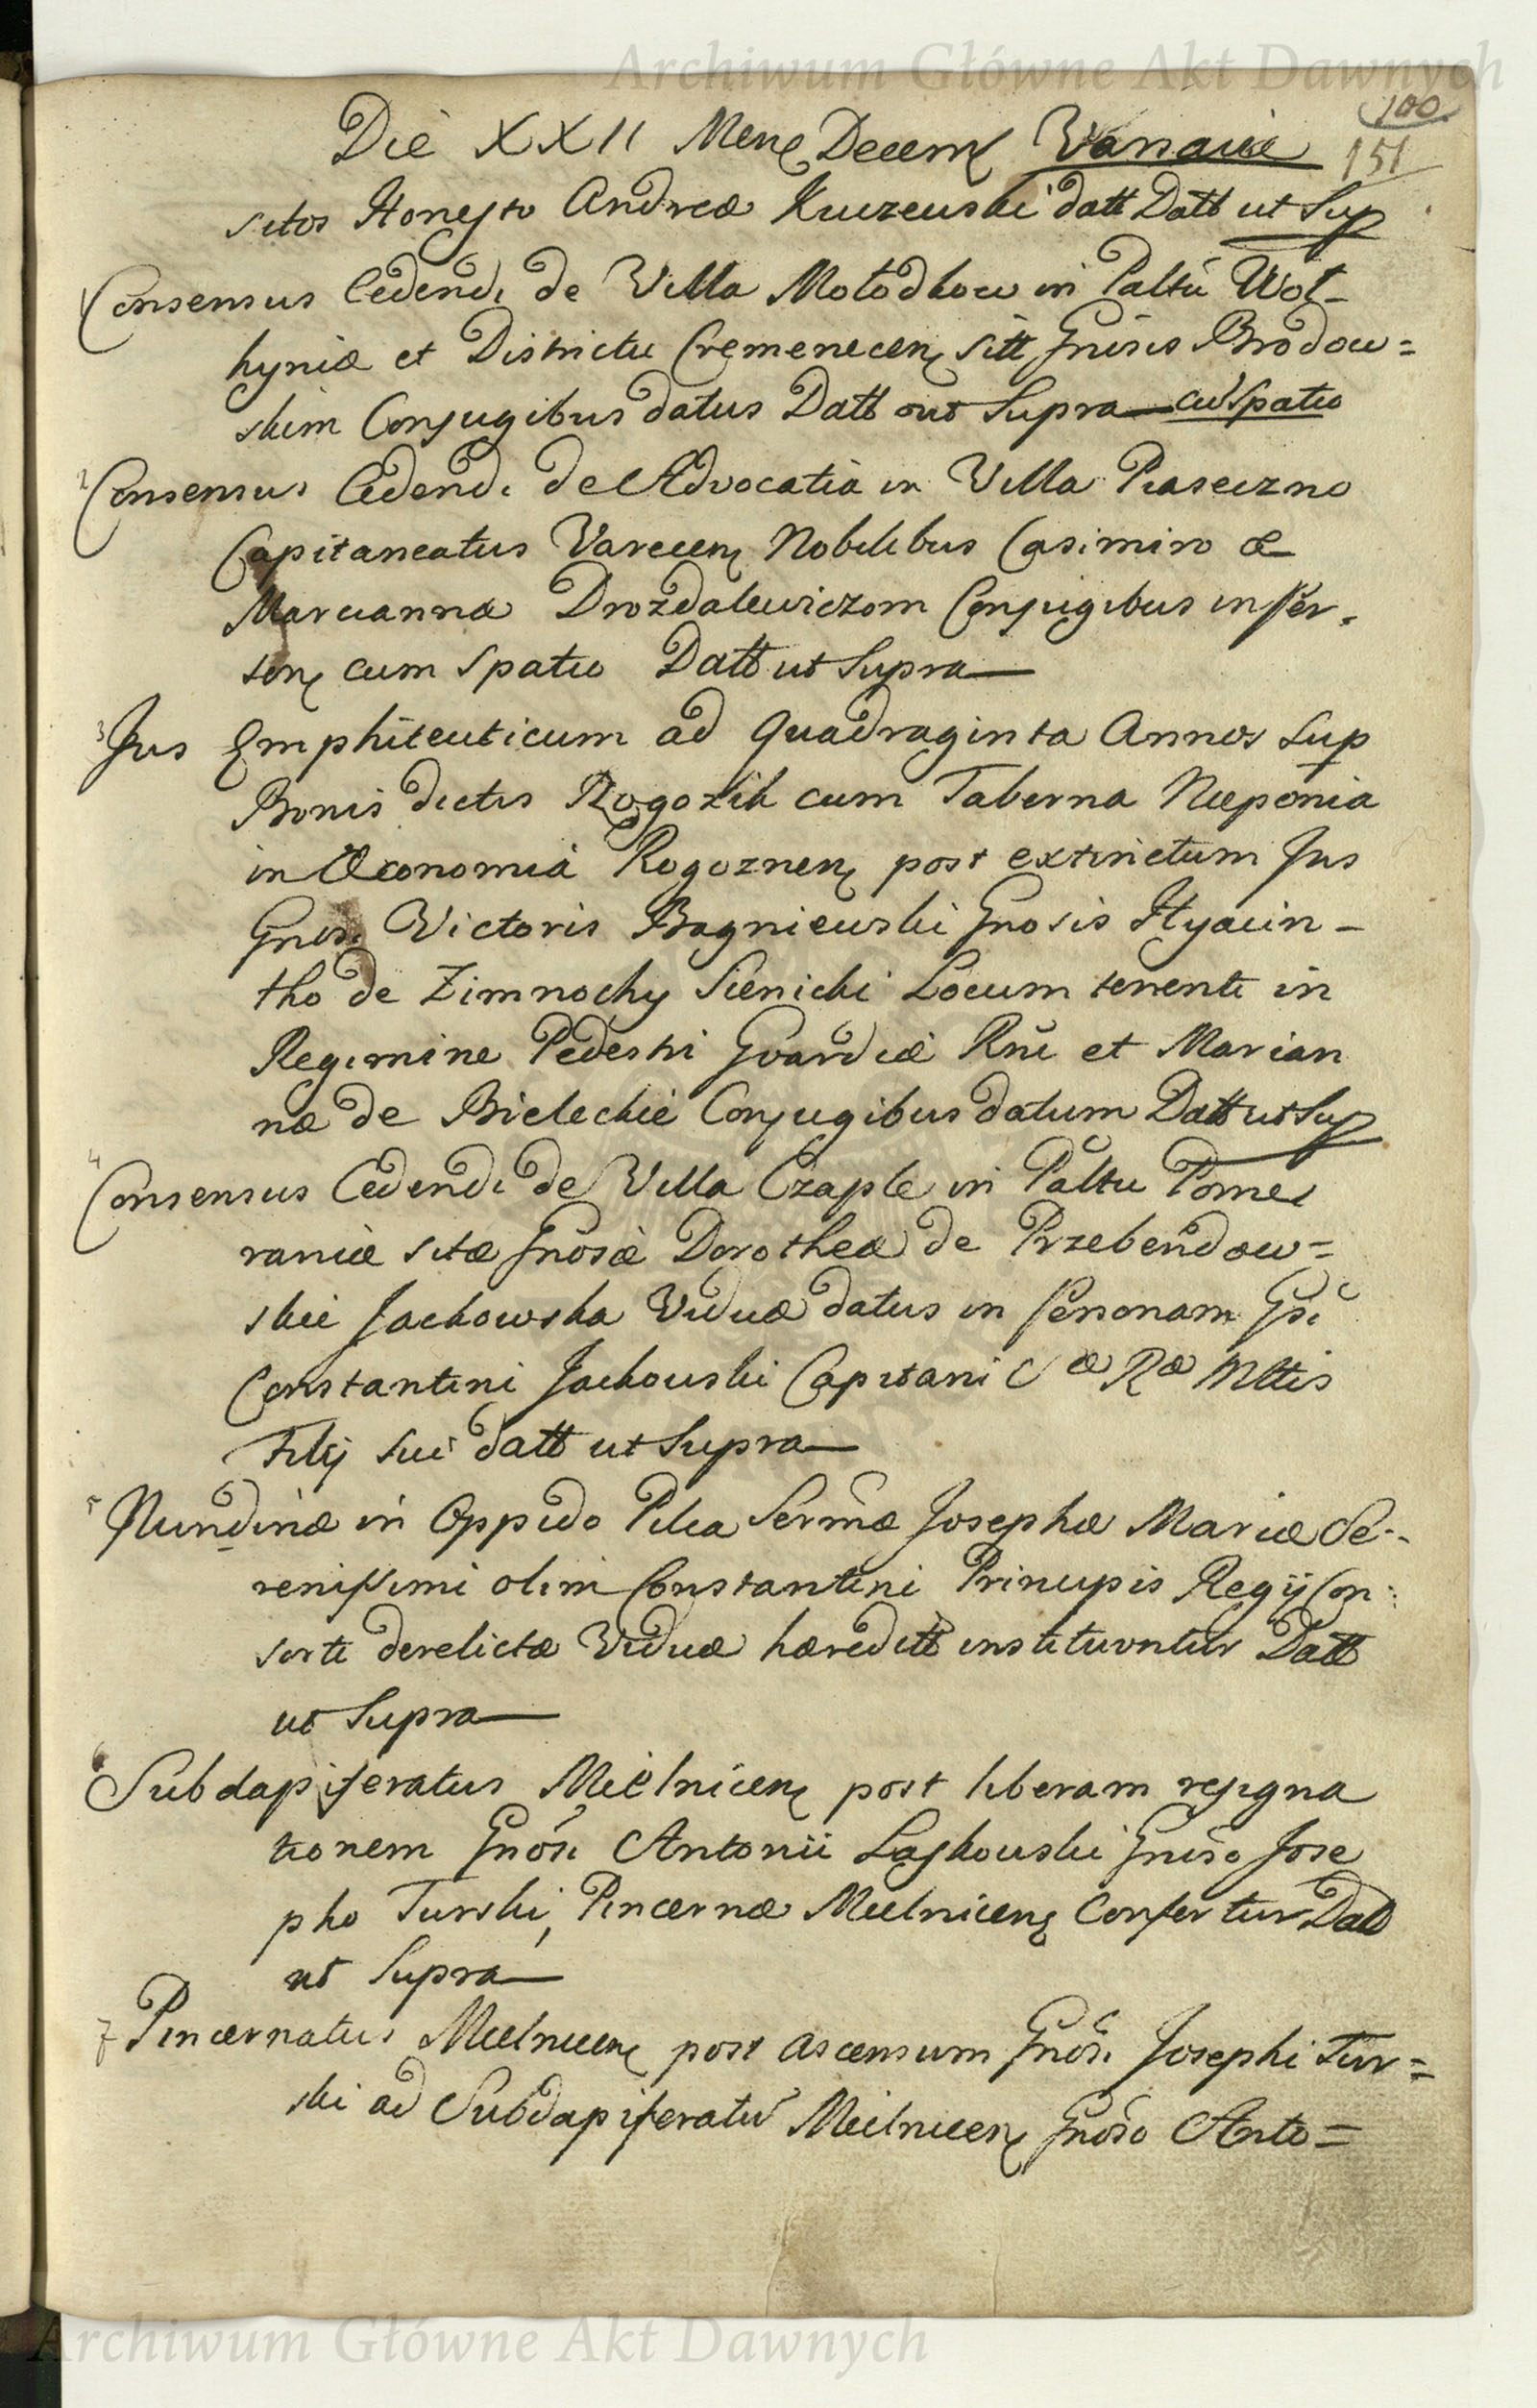 Archiwum Główne Akt Dawnych
100
Die XXII Mens Decem Varsaviæ 151
sitos Honesto Andreæ Kurzewski datt Datt ut Sup
1 Consensus Cedendi de Villa Mołodkow in Paltu Wol-
hyniæ et Districtu Cremenecens sitt Gnosis Brodow=
skim Conjugibus datus Datt out Supra cu Spatio
2 Consensus Cedendi de Advocatia in Villa Piaseczno
Capitaneatus Varecens Nobilibus Casimiro &
Mariannæ Drozdalewiczom Conjugibus in ser.
tens cum Spatio Datt ut Supra
3 Jus Emphiteuticum ad Quadraginta Annos Sup
Bonis dictis Rogozik cum Taberna Nieponia
in Œconomia Rogoznens post extinctum Jus
Gnosi Victoris Bagniewski Gnosis Hyacin-
tho de Zimnochy Sienicki Locum tenenti in
Regimine Pedestri Gvardiæ Rni et Marian
næ de Bieleckie Conjugibus datum Datt ut Sup
4 Consensus Cedendi de Villa Czaple in Paltu Pome
raniæ sitæ Gnosæ Dorotheæ de Przebendow=
skie Jackowska Viduæ datus in Personam Gsi
Constantini Jackowski Capitani Cæ Ræ Mttis
Filij sui datt ut Supra
5 Nundinæ in Oppido Pilca Sermæ Josephæ Mariæ Se-
renissimi olim Constantini Principis Regij Con:
sorti derelictæ Viduæ hæreditt instituontur Datt
ut Supra
6 Subdapiferatus Mielnicens post liberam resigna
tionem Gnosi Antonii Laskowski Gnoso Jose
pho Turski, Pincernæ Mielnicens Confertur Datt
ut Supra
7 Pincernatus Mielnicens post ascensum Gnosi Josephi Tur=
ski ad Subdapiferatu Mielnicens Gnoso Anto=
Archiwum Główne Akt Dawnych